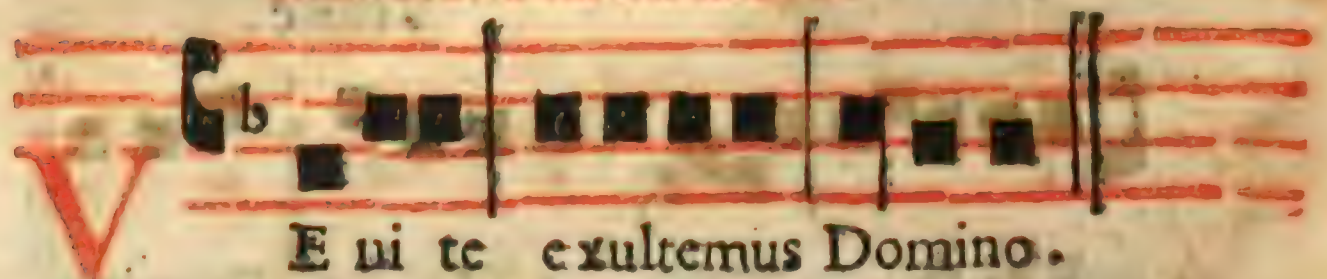 VE ui te exultemus Domino.